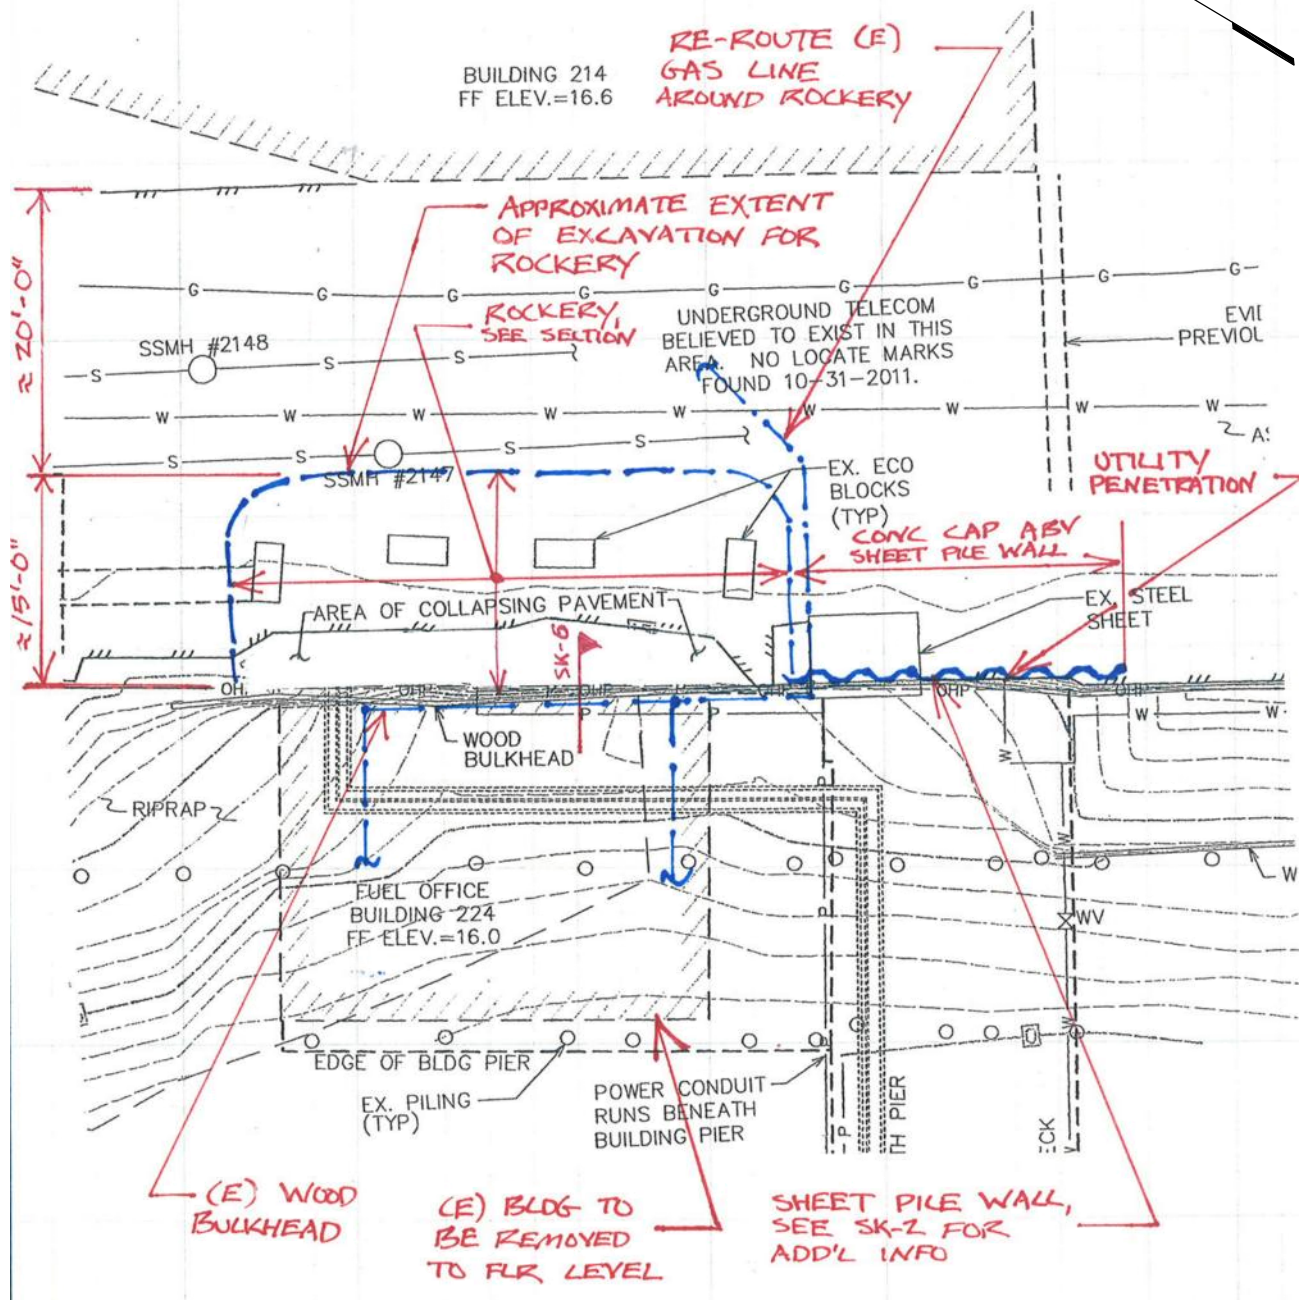 RE-ROUTE (E)
GAS LINE
AROUND ROCKERY
BUILDING 214
FF ELEV.=16.6
APPROXIMATE EXTENT
OF EXCAVATION FOR
ROCKERY
≈ 20'-0"
G G G G G G G G G
ROCKERY,
SEE SECTION
UNDERGROUND TELECOM
BELIEVED TO EXIST IN THIS
AREA. NO LOCATE MARKS
FOUND 10-31-2011.
EVID
PREVIOU
SSMH #2148
S S S
W W W W W W W W W
S S S
SSMH #2147
AS
EX. ECO
BLOCKS
(TYP)
UTILITY
PENETRATION
CONC CAP ABV
SHEET PILE WALL
≈ 15'-0"
AREA OF COLLAPSING PAVEMENT
EX. STEEL
SHEET
SK-6
OH OHP OHP OHP OHP OHP
P P W W
WOOD
BULKHEAD
W
RIPRAP
P
W
W
FUEL OFFICE
BUILDING 224
FF ELEV.=16.0
P
WV
W
P
EDGE OF BLDG PIER
EX. PILING
(TYP)
POWER CONDUIT
RUNS BENEATH
BUILDING PIER
P
TH PIER
ECK
(E) WOOD
BULKHEAD
(E) BLDG TO
BE REMOVED
TO FLR LEVEL
SHEET PILE WALL,
SEE SK-2 FOR
ADD'L INFO